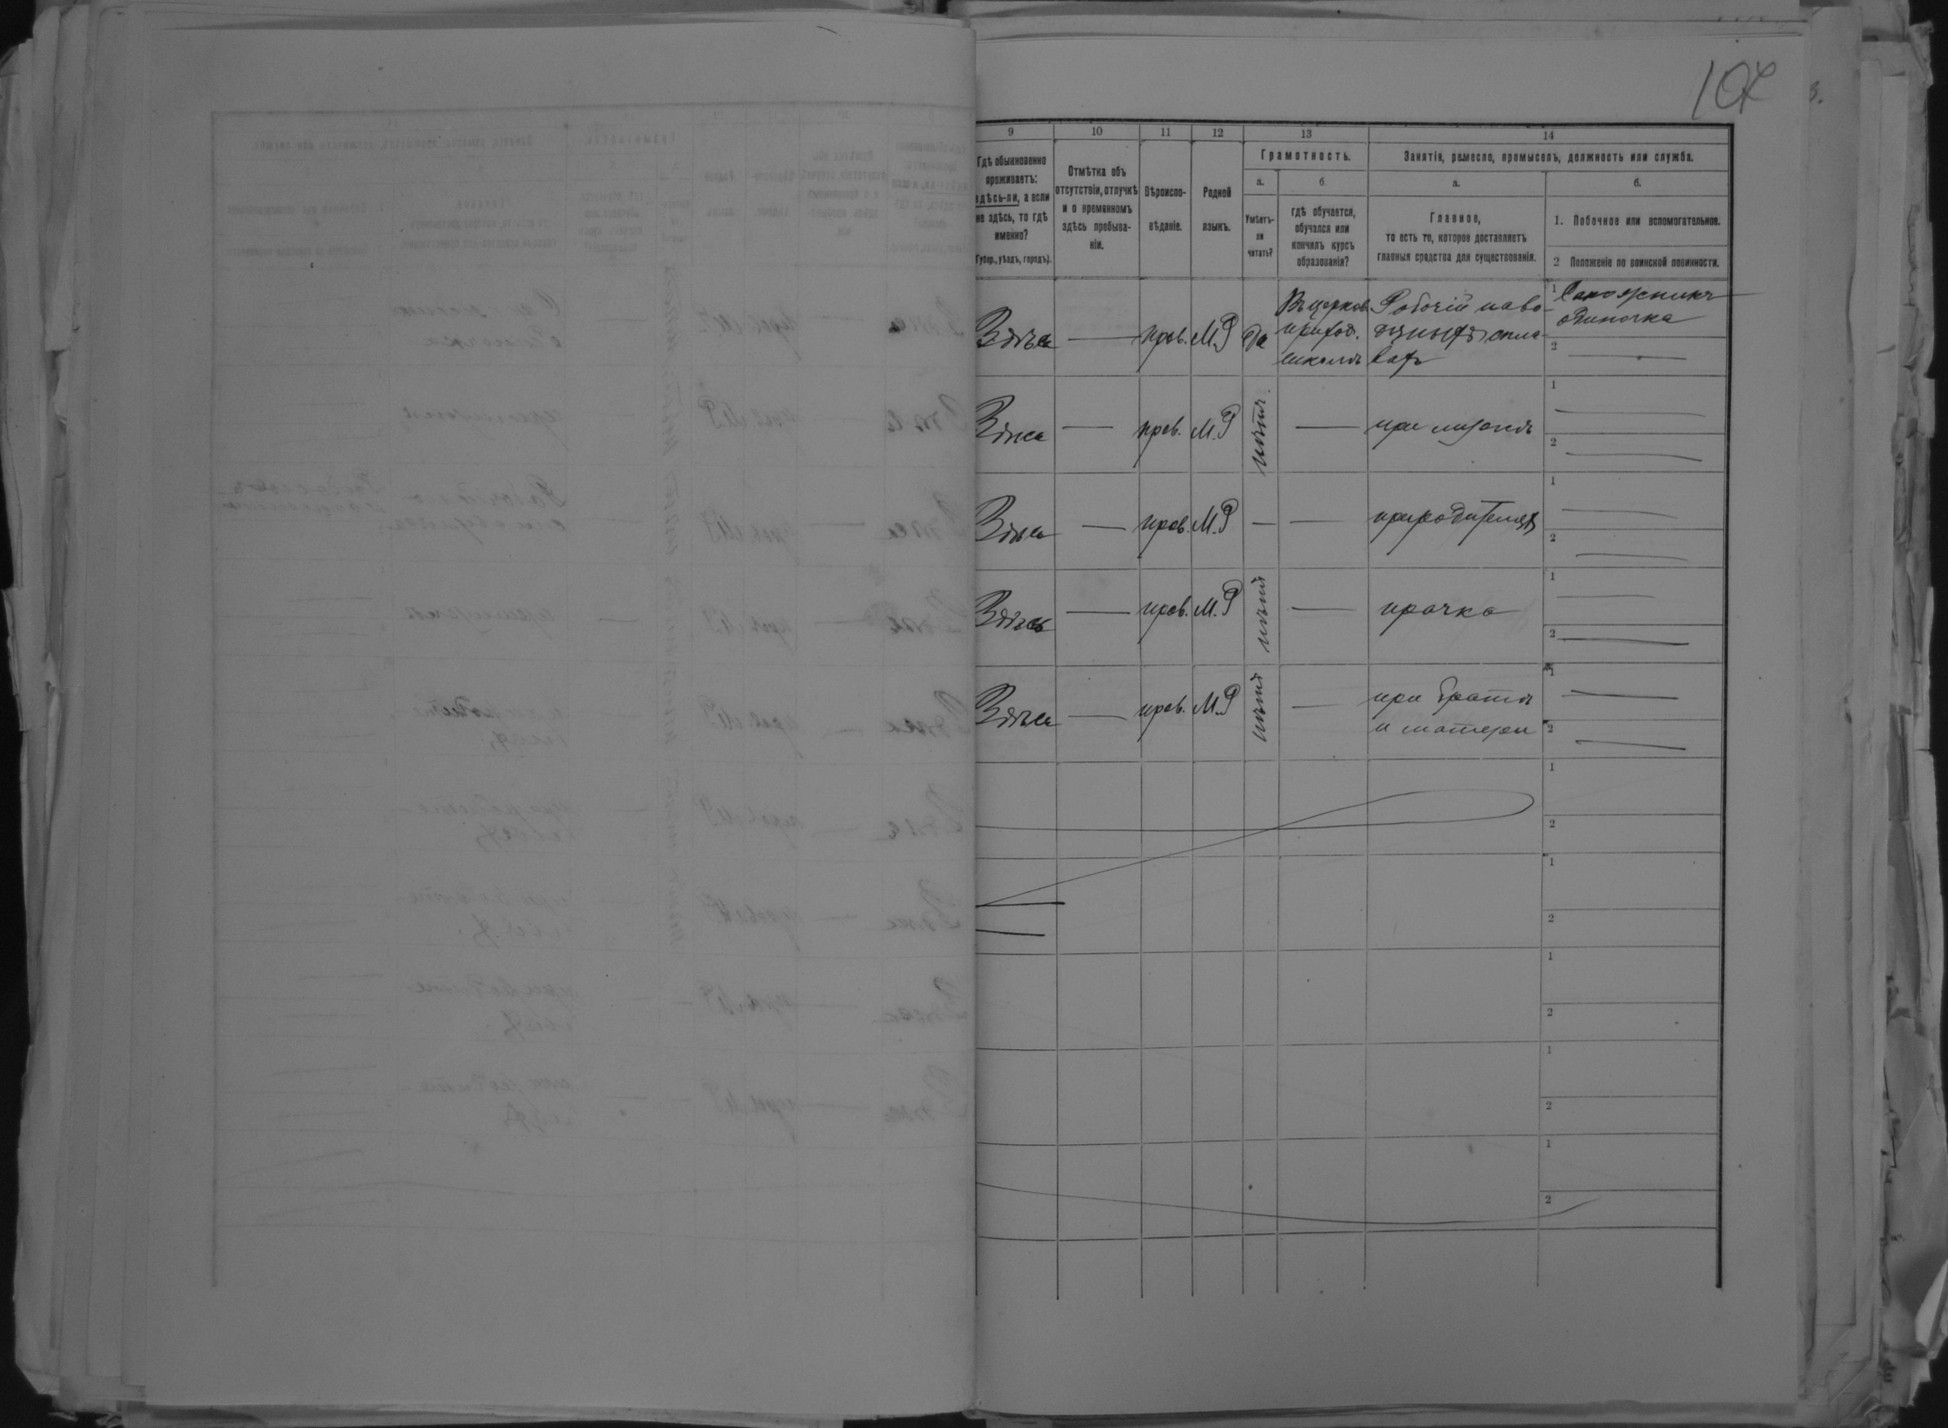 107
9 10 11 12 13 14
Гдѣ обыкновенно
проживаетъ:
здѣсь-ли, а если
не здѣсь, то гдѣ
именно?
(Губер., уѣздъ, городъ).
Отмѣтка объ
отсутствіи, отлучкѣ
и о временномъ
здѣсь пребыва-
ніи.
Вѣроиспо-
вѣданіе.
Родной
языкъ.
Грамотность.
а.
Умѣетъ-
ли
читать?
б.
гдѣ обучается,
обучался или
кончилъ курсъ
образованія?
Занятіе, ремесло, промыселъ, должность или служба.
а.
Главное,
то есть то, которое доставляетъ
главныя средства для существованія.
б.
1. Побочное или вспомогательное.
2 Положеніе по воинской повинности.
Здѣсь — прав. М.Р да
Въ церков.
приход.
школѣ
Рабочій на во-
1 Сапожникъ
одиночка
2 —
Здѣсь — прав. М.Р нѣтъ — при мужѣ
1 —
2 —
Здѣсь — прав. М.Р — — при родителяхъ
1 —
2 —
Здѣсь — прав. М.Р нѣтъ — прачка
1 —
2 —
Здѣсь — прав. М.Р нѣтъ —
при братѣ
и матери
1 —
2 —
1
2
1
2
1
2
1
2
1
2